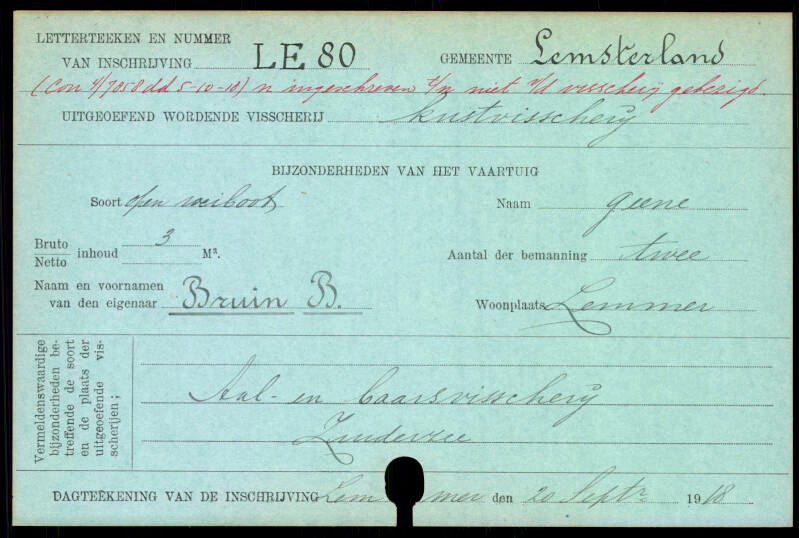 LETTERTEEKEN EN NUMMER
VAN INSCHRIJVING LE 80 GEMEENTE Lemsterland
(Con 4/7058 dd 5-10-18) n ingeschreven t/m niet v/d visscherij gebezigd.
UITGEOEFEND WORDENDE VISSCHERIJ kustvisscherij
BIJZONDERHEDEN VAN HET VAARTUIG
Soort open roeiboot Naam geene
Bruto
Netto inhoud 3 M³. Aantal der bemanning twee
Naam en voornamen
van den eigenaar Bruin B. Woonplaats Lemmer
Vermeldenswaardige
bijzonderheden be-
treffende de soort
en de plaats der
uitgeoefende vis-
scherijen;
Aal- en baarsvisscherij
Zuiderzee
DAGTEEKENING VAN DE INSCHRIJVING Lemmer den 20 Septr 1918